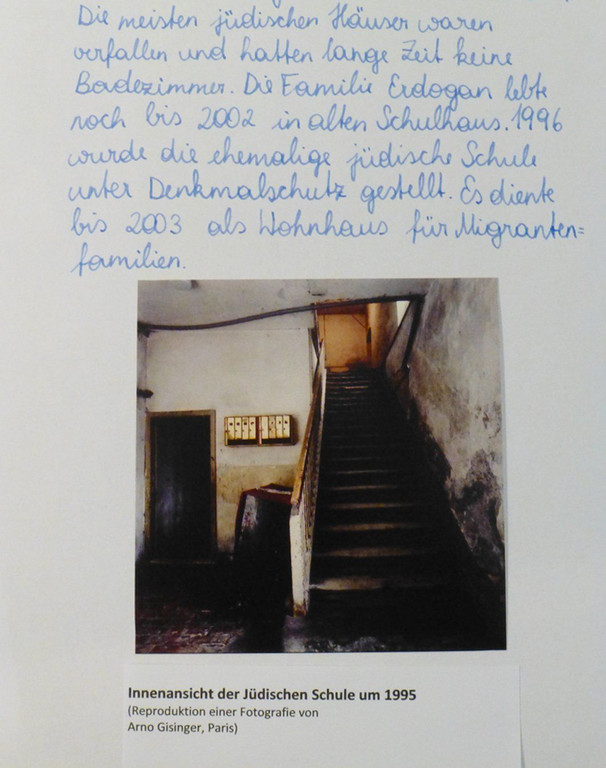 Die meisten jüdischen Häuser waren
verfallen und hatten lange Zeit keine
Badezimmer. Die Familie Erdogan lebte
noch bis 2002 in alten Schulhaus. 1996
wurde die ehemalige jüdische Schule
unter Denkmalschutz gestellt. Es diente
bis 2003 als Wohnhaus für Migranten=
familien.
Innenansicht der Jüdischen Schule um 1995
(Reproduktion einer Fotografie von
Arno Gisinger, Paris)